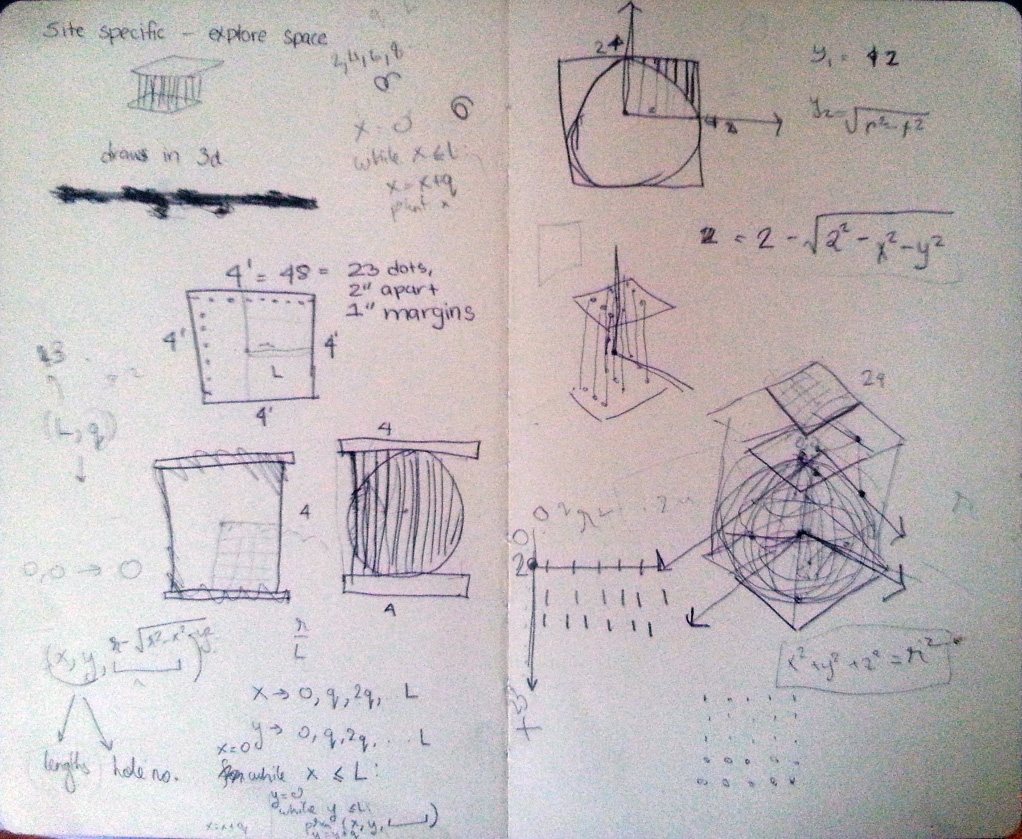 Site specific - explore space
2,4,6,8
6
x = 0
while x ≤ L:
x = x+q
print x
draws in 3d
4' = 48 = 23 dots,
2" apart
1" margins
4'
4'
L
4'
(L, q)
4
4
4
0,0 → 0
(x, y, r-√r²-x²-y²)
r/L
lengths
hole no.
x → 0, q, 2q, L
y → 0, q, 2q, ... L
x=0
while x ≤ L:
y=0
while y ≤ L:
print (x, y, )
y=y+q
x=x+q
2
y₁ = 2
y₂ = √r²-x²
z = 2 - √2²-x²-y²
24
0
2
x²+y²+z² = r²